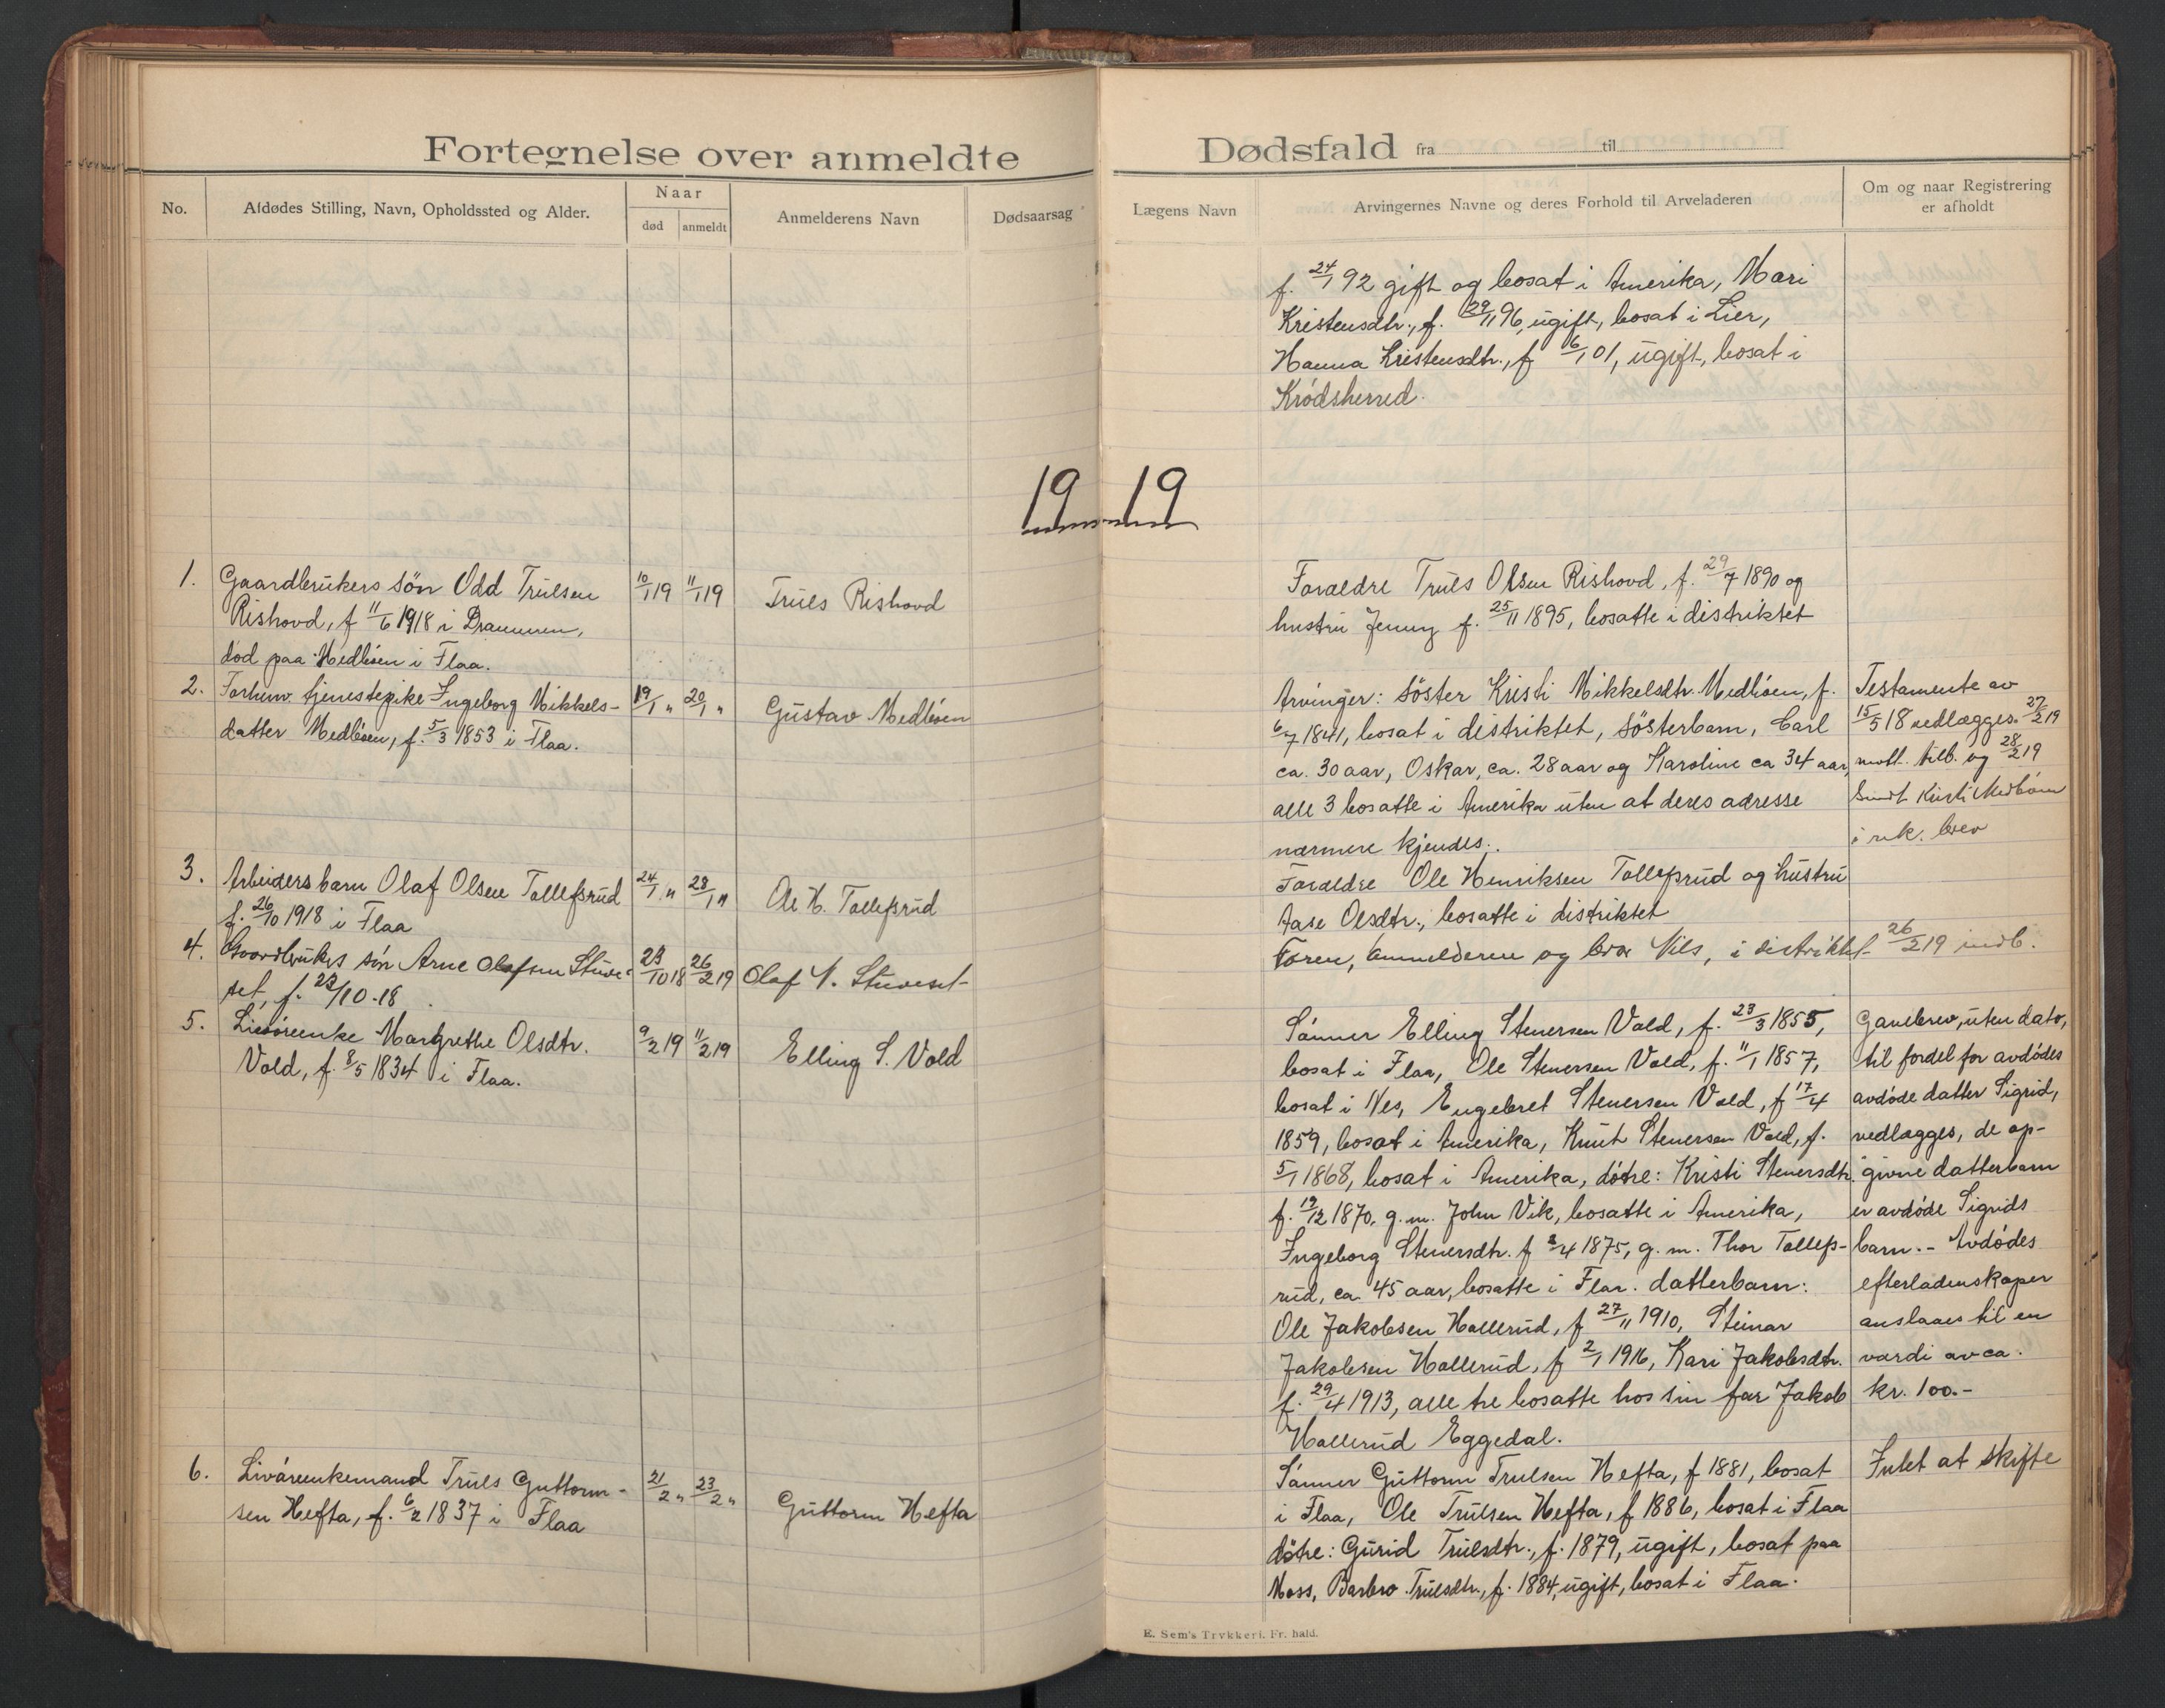 Fortegnelse over anmeldte Dødsfald fra til
No.
Afdødes Stilling, Navn, Opholdssted og Alder.
Naar
død
anmeldt
Anmelderens Navn
Dødsaarsag
Lægens Navn
Arvingernes Navne og deres Forhold til Arveladeren
Om og naar Registrering
er afholdt
f. 24/1 92 gift og bosat i Amerika, Mari
Kristensdtr., f. 29/11 96, ugift, bosat i Lier,
Hanna Kristensdtr., f 6/1 01, ugift, bosat i
Krødsherred.
19 19
1. Gaardbrukers søn Odd Trulsen
Rishovd, f 11/6 1918 i Drammen,
død paa Medbøen i Flaa.
10/1 19 11/1 19
Truls Rishovd
Foraeldre Truls Olsen Rishovd, f. 29/7 1890 og
hustru Jenny f. 25/11 1895, bosatte i distriktet
2. Forhenv. tjenestepike Ingeborg Mikkels-
datter Medbøen, f. 5/3 1853 i Flaa.
19/1 " 20/1 "
Gustav Medbøen
Arvinger: søster Kristi Mikkelsdtr. Medbøen, f.
6/7 1841, bosat i distriktet, søsterbarn, Carl
ca. 30 aar, Oskar, ca. 28 aar og Karoline ca 34 aar,
alle 3 bosatte i Amerika uten at deres adresse
nærmere kjendes.
Testamente av
15/5 18 vedlægges. 27/2 19
mott. tilb. og 28/2 19
Sendt Kristi Medbøen
i rek. brev
3. Arbeidersbarn Olaf Olsen Tollefsrud
f. 26/10 1918 i Flaa
24/1 " 28/1 "
Ole H. Tollefsrud
Foraeldre Ole Henriksen Tollefsrud og hustru
Aase Olsdtr., bosatte i distriktet
4. Gaardbrukers søn Arne Olafsen Stuve-
set, f. 23/10-18
23/10 18 26/2 19
Olaf N. Stuveset
Foren, anmelderen og bror Nils, i distriktet
26/2 19 indb.
5. Livørenke Margrethe Olsdtr.
Vold, f. 8/5 1834 i Flaa.
9/2 19 11/2 19
Elling S. Vold
Sønner Elling Stenersen Vold, f. 23/3 1855,
bosat i Flaa, Ole Stenersen Vold, f. 11/1 1857,
bosat i Nes, Engebret Stenersen Vold, f 17/4
1859, bosat i Amerika, Knut Stenersen Vold, f.
5/1 1868, bosat i Amerika, døtre: Kristi Stenersdtr.
f. 19/12 1870, g. m. John Vik, bosatte i Amerika,
Ingeborg Stenersdtr. f 2/4 1875, g. m. Thor Tollefs-
rud, ca 45 aar, bosatte i Flaa. datterbarn:
Ole Jakobsen Hallerud, f 27/11 1910, Steinar
Jakobsen Hallerud, f 2/1 1916, Kari Jakobsdtr.
f. 29/4 1913, alle tre bosatte hos sin far Jakob
Hallerud Eggedal.
Gavebrev, uten dato,
til fordel for avdødes
avdøde datter Sigrid,
vedlægges, de op-
givne datterbarn
er avdøde Sigrids
barn. - Avdødes
efterladenskaper
anslaaes til en
værdi av ca.
kr. 100.-
6. Livørenkemand Truls Guttorm-
sen Hefta, f. 6/2 1837 i Flaa
21/2 " 23/2 "
Guttorm Hefta
Sønner Guttorm Trulsen Hefta, f 1881, bosat
i Flaa, Ole Trulsen Hefta, f 1886, bosat i Flaa
døtre: Gurid Trulsdtr., f. 1879, ugift, bosat paa
Moss, Barbro Trulsdtr., f. 1884, ugift, bosat i Flaa.
Intet at skifte
E. Sem's Trykkeri. Fr. hald.